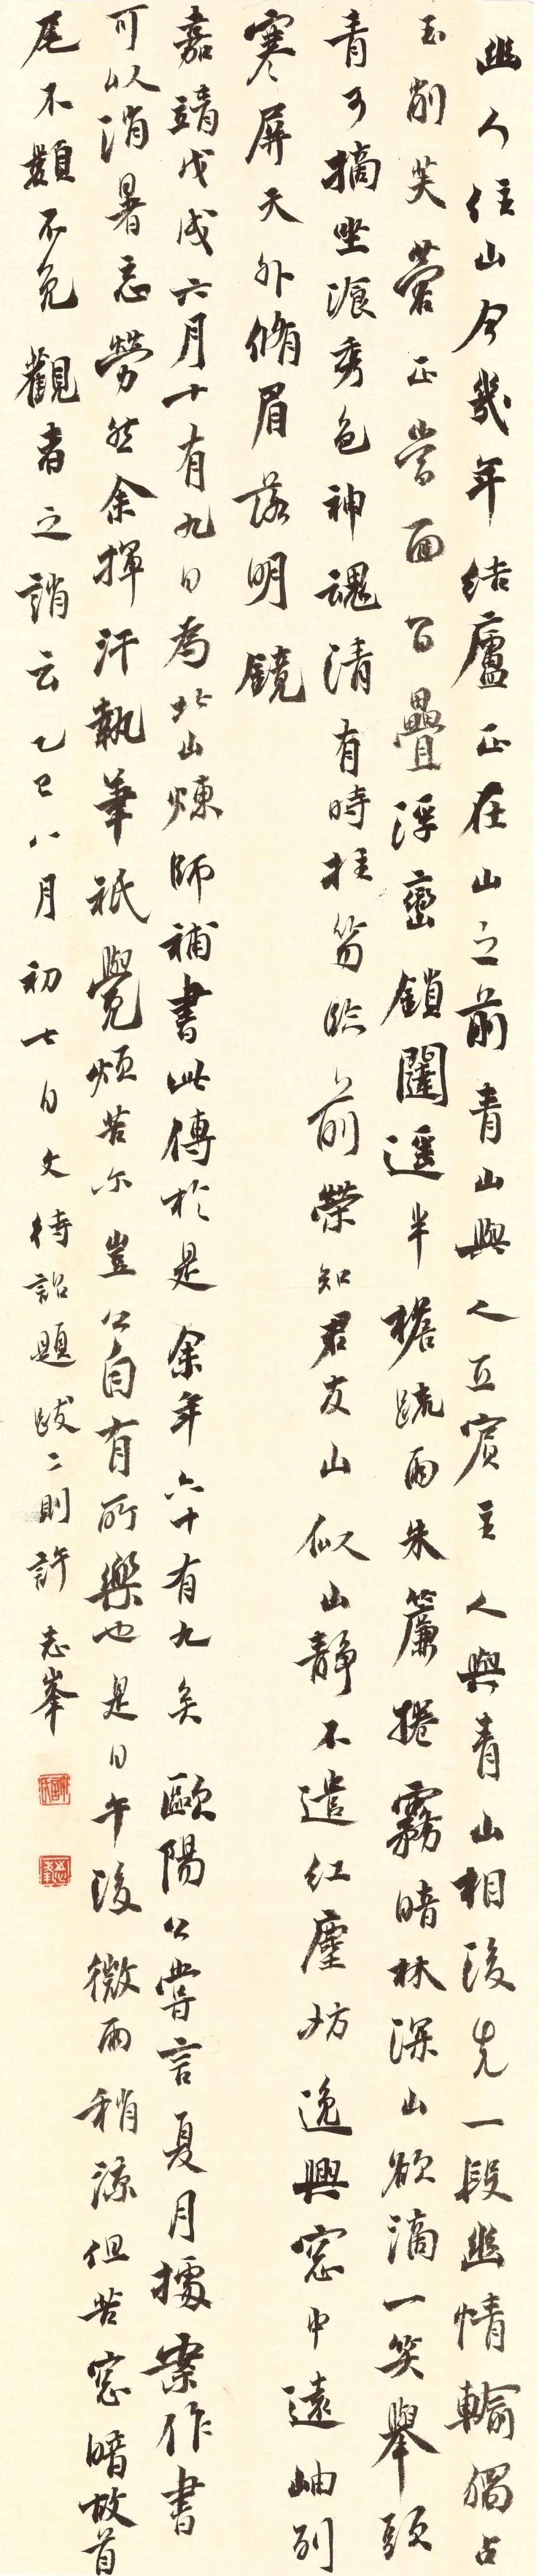 幽人住山今幾年結廬正在山之前青山與人互賓主人與青山相後先一段幽情輸獨占
玉削芙蓉正當面百疊浮巒鎖闥遥半襜疏雨朱簾捲霧暗林深山欲滴一笑舉頭
青可摘坐湌秀色神魂清有時拄笏臨前榮知君友山似山靜不遣紅塵妨逸興窓中遠岫列
寒屏天外脩眉落明鏡
嘉靖戊戌六月十有九日為北山煉師補書此傳於是余年六十有九矣歐陽公嘗言夏月據案作書
可以消暑忘勞然余揮汗執筆祇覺煩苦尒豈公自有所樂也是日午後微雨稍涼但苦窓暗故首
尾不類不免觀者之誚云乙巳八月初七日文待詔題跋二則許志峯